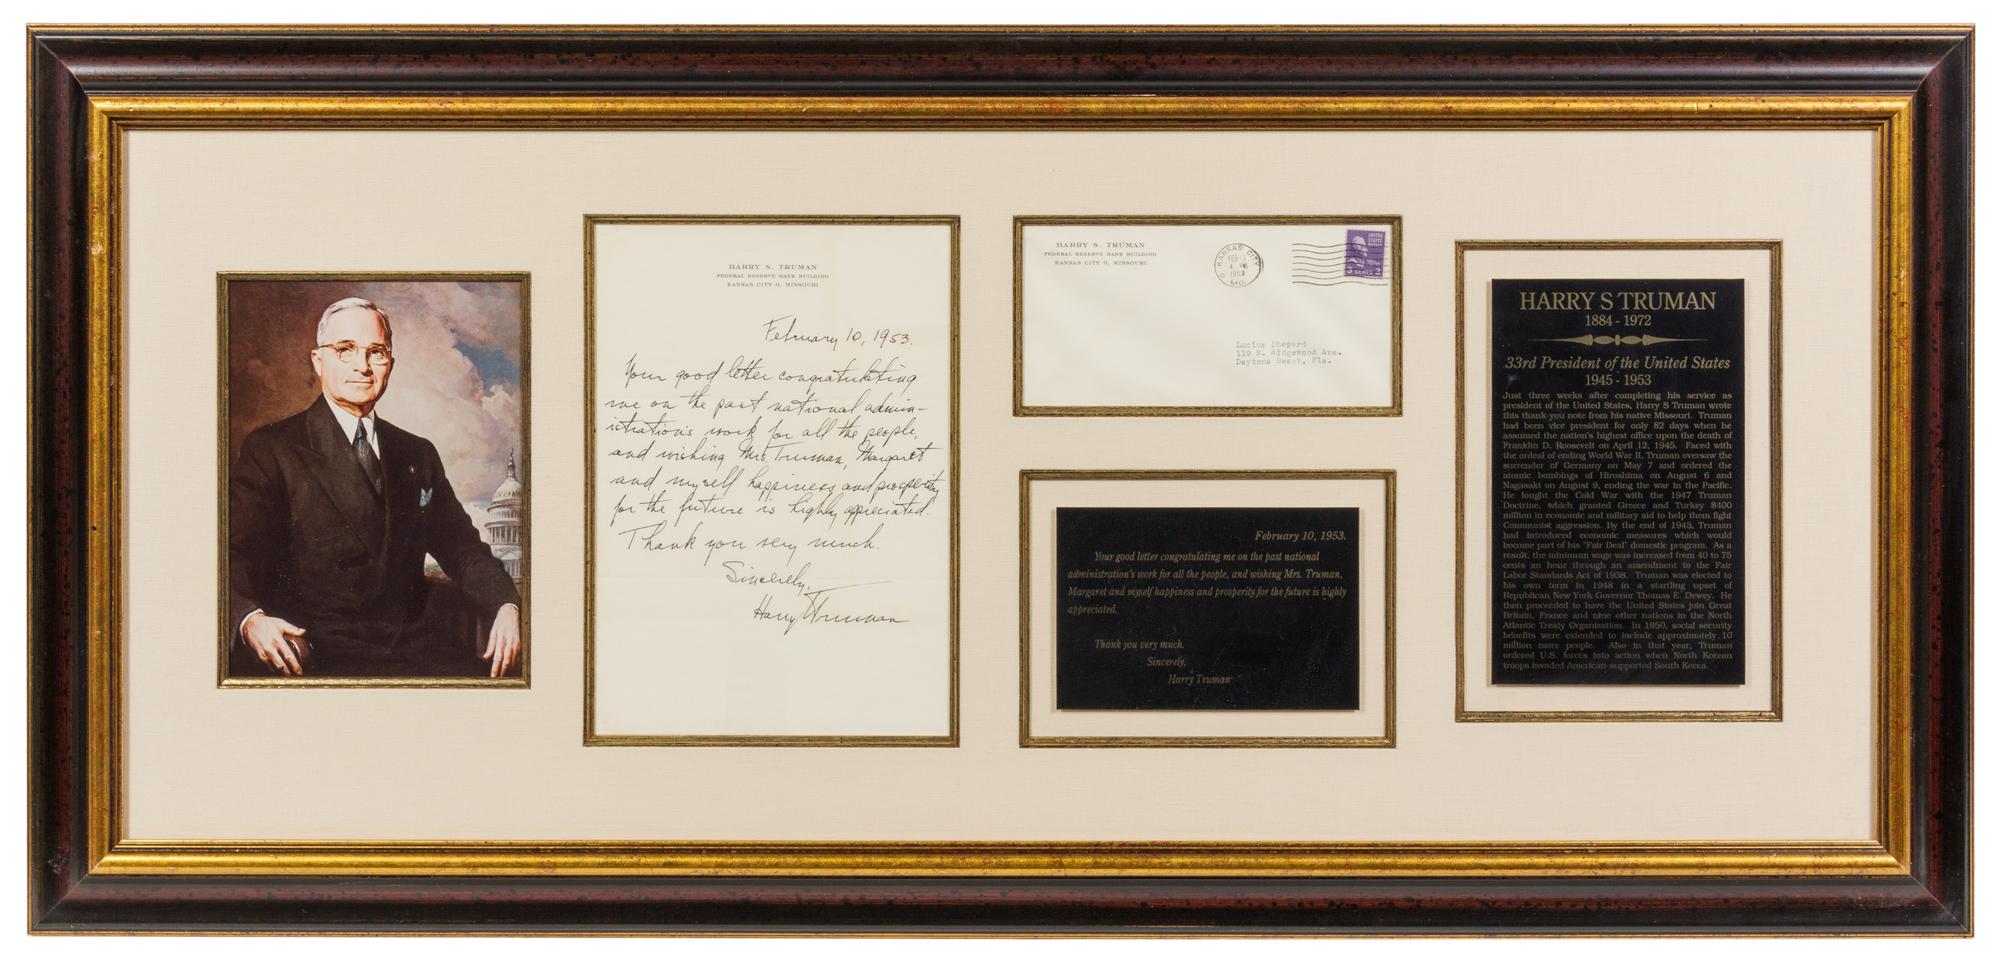 HARRY S. TRUMAN
FEDERAL RESERVE BANK BUILDING
KANSAS CITY 6, MISSOURI
February 10, 1953.
Your good letter congratulating
me on the past national admin-
istration's work for all the people,
and wishing Mrs. Truman, Margaret
and myself happiness and prosperity
for the future is highly appreciated.
Thank you very much.
Sincerely,
Harry Truman
HARRY S. TRUMAN
FEDERAL RESERVE BANK BUILDING
KANSAS CITY 6, MISSOURI
KANSAS CITY
FEB
4 PM
1953
MO.
UNITED
STATES
POSTAGE
3 CENTS 3
Lucius Shepard
119 N. Ridgewood Ave.
Daytona Beach, Fla.
February 10, 1953.
Your good letter congratulating me on the past national
administration's work for all the people, and wishing Mrs. Truman,
Margaret and myself happiness and prosperity for the future is highly
appreciated.
Thank you very much.
Sincerely,
Harry Truman
HARRY S TRUMAN
1884 - 1972
33rd President of the United States
1945 - 1953
Just three weeks after completing his service as
president of the United States, Harry S Truman wrote
this thank-you note from his native Missouri. Truman
had been vice president for only 82 days when he
assumed the nation's highest office upon the death of
Franklin D. Roosevelt on April 12, 1945. Faced with
the ordeal of ending World War II, Truman oversaw the
surrender of Germany on May 7 and ordered the
atomic bombings of Hiroshima on August 6 and
Nagasaki on August 9, ending the war in the Pacific.
He fought the Cold War with the 1947 Truman
Doctrine, which granted Greece and Turkey $400
million in economic and military aid to help them fight
Communist aggression. By the end of 1945, Truman
had introduced economic measures which would
become part of his "Fair Deal" domestic program. As a
result, the minimum wage was increased from 40 to 75
cents an hour through an amendment to the Fair
Labor Standards Act of 1938. Truman was elected to
his own term in 1948 in a startling upset of
Republican New York Governor Thomas E. Dewey. He
then proceeded to have the United States join Great
Britain, France and nine other nations in the North
Atlantic Treaty Organization. In 1950, social security
benefits were extended to include approximately 10
million more people. Also in that year, Truman
ordered U.S. forces into action when North Korean
troops invaded American-supported South Korea.